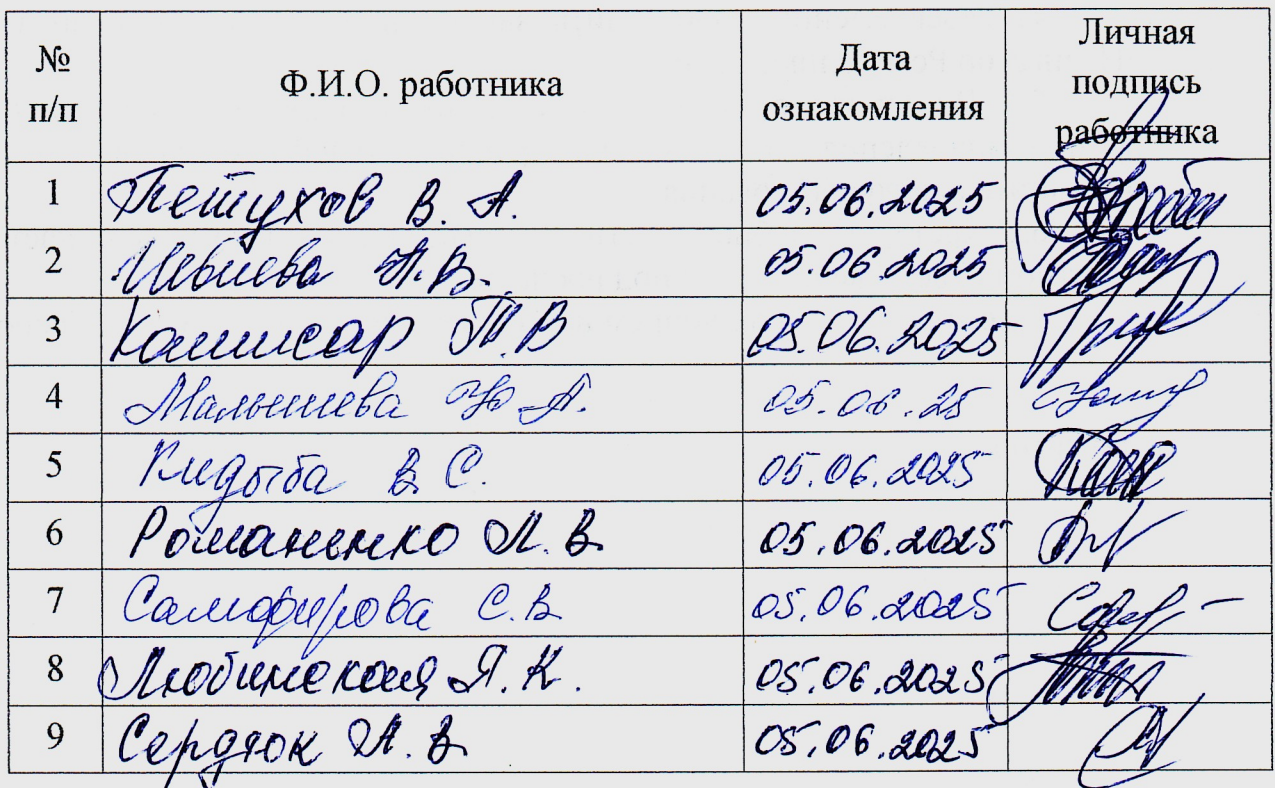 № п/п Ф.И.О. работника Дата ознакомления Личная подпись работника
1 Петухов В. А. 05.06.2025
2 А.В. 05.06.2025
3 Комисар Т.В 05.06.2025
4 Малышева Ю.А. 05.06.25
5 Кидыба В.С. 05.06.2025
6 Романенко Л.В. 05.06.2025
7 С.В. 05.06.2025
8 Любинская Я.К. 05.06.2025
9 Сердюк А.В. 05.06.2025